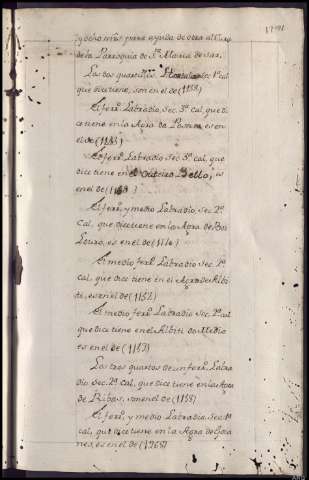 y ocho mrs. para ayuda de obra al
de la Parroquia de Sta. Maria de
Los dos quartillos, Hortaliza 1ª cal
que dice tiene, son en el de (1158)
El ferº Labradio, Sec. 3ª cal, que di
ce tiene en la Agra de es en
el de (1148)
El ferº Labradio Sec. 3ª cal, que
dice tiene en el Outeiro Bello, es
en el de
El ferº, y medio Labradio, sec. 2ª
Cal, que dice tiene en la Agra de
Louro, es en el de (1170)
El medio ferº Labradio Sec. 2ª
cal, que dice tiene en Agra de Albi
ti, es en el de (1152)
El medio ferº Labradio Sec. 2ª cal
que dice tiene en el Albiti de Medio
es en el de (1153)
Los tres quartos de un ferº, Labra
dio Sec. 2ª Cal, que dice tiene en la Agra
de Ribas, son en el de (1158)
El ferº, y medio Labradio, Sec. 1ª
cal, que dice tiene en la Agra de Goia
nes, es en el de (1265)